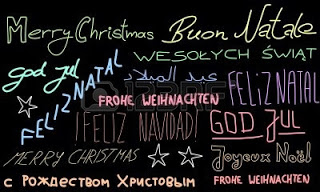 Merry Christmas
Buon Natale
WESOŁYCH ŚWIĄT
god jul
FELIZ NATAL
عيد الميلاد
FELIZ NATAL
FROHE WEIHNACHTEN
¡FELIZ NAVIDAD!
GOD JUL
MERRY CHRISTMAS
Joyeux Noël
с Рождеством Христовым
FROHE WEIHNACHTEN